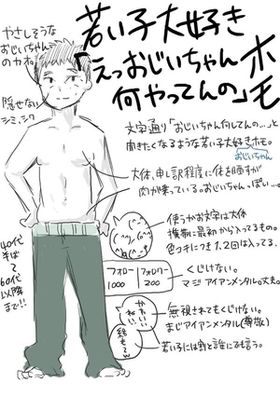 若い子大好き
「えっおじいちゃん
何やってんの」ホモ
やさしそうな
おじいちゃん
のカオ。
隠せない
シミ、シワ
文字通り「おじいちゃん何してんの…」と
聞きたくなるような若い子大好きホモ。
おじいちゃん
大体、申し訳程度に体を晒すが
肉が乗っている。おじいちゃんっぽい…。
使うかお文字は大体
携帯に最初から入ってるもの。
色コチにつき1,2回は入ってる。
フォロー
1000
フォロワー
200
くじけない。
マジアイアンメンタルの大先。
無視されてもくじけない。
まじアイアンメンタル(尊敬)
若い子には割と誰にでも言う。
やりたい
ねぇ
40代
半ば
〜
60代
以降
まで!!